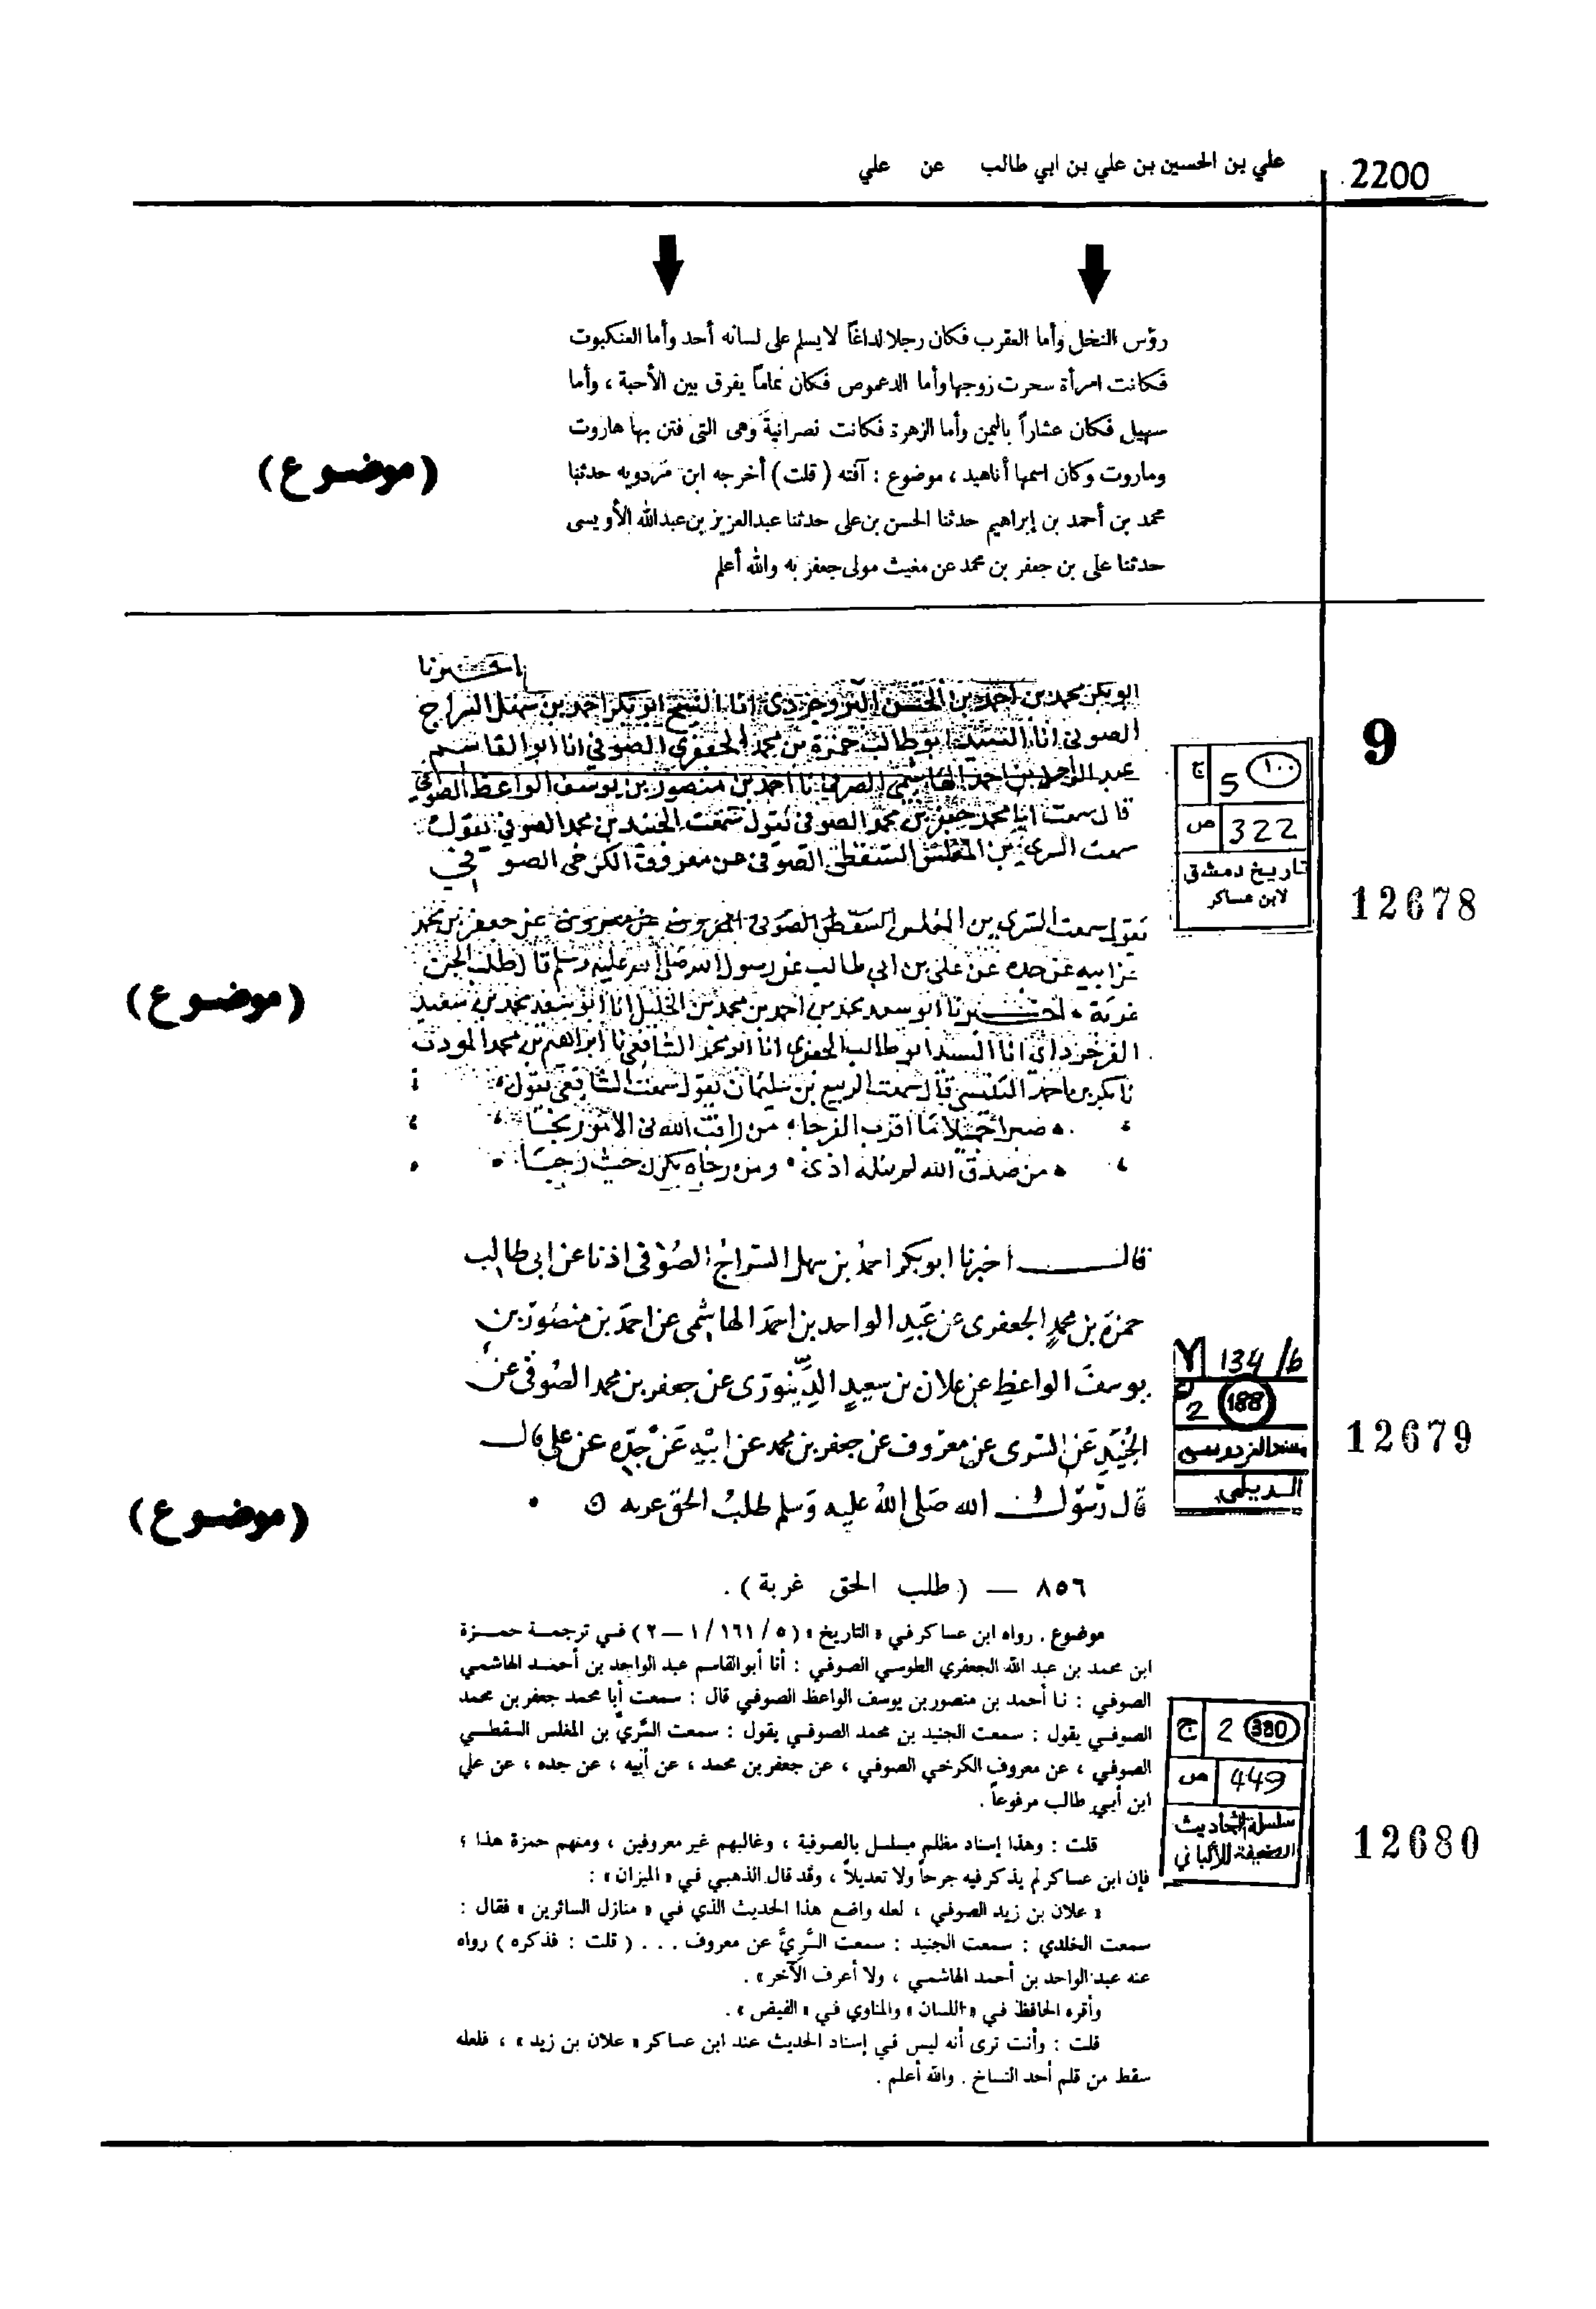 2200
علي بن الحسين بن علي بن ابي طالب عن علي
رؤس النخل وأما العقرب فكان رجلا لداغاً لا يسلم على لسانه أحد وأما العنكبوت
فكانت امرأة سحرت زوجها وأما الدعموص فكان نماماً يفرق بين الأحبة ، وأما
سهيل فكان عشاراً باليمن وأما الزهرة فكانت نصرانية وهى التى فتن بها هاروت
(موضوع)
وماروت وكان اسمها أناهيد ، موضوع : آفته ( قلت ) أخرجه ابن مردويه حدثنا
محمد بن أحمد بن إبراهيم حدثنا الحسن بن على حدثنا عبدالعزيز بن عبدالله الأويسى
حدثنا على بن جعفر بن محمد عن مغيث مولى جعفر به والله أعلم
اخبرنا
ابو بكر محمد بن احمد بن الحسن البروجردي انا الشيخ ابو بكر احمد بن سهل السراج
الصوفي انا السيد ابو طالب حمزة بن محمد الجعفري الصوفي انا ابو القاسم
عبد الواحد بن احمد الهاشمي الصوفي نا احمد بن منصور بن يوسف الواعظ الصوفي
قال سمعت ابا محمد جعفر بن محمد الصوفي يقول سمعت الجنيد بن محمد الصوفي يقول
سمعت السري بن المغلس السقطي الصوفي عن معروف الكرخي الصوفي
9
ج 5 ١٠٠
ص 322
تاريخ دمشق
لابن عساكر
12678
يقول سمعت السري بن المغلس السقطي الصوفي عن معروف عن جعفر بن محمد
عن ابيه عن جده عن علي بن ابي طالب عن رسول الله صلى الله عليه وسلم قال طلب الحق
(موضوع)
غربة اخبرنا ابو سعد محمد بن احمد بن محمد بن الخليل انا ابو سعد محمد بن سعيد
انا السيد ابو طالب الجعفري انا ابو محمد الشافعي نا ابراهيم بن محمد المودب
نا بكر بن احمد قال سمعت الربيع بن سليمان يقول سمعت الشافعي يقول
صبرا جميلا ما اقرب الفرجا من راقب الله في الامور نجا
من صدق الله لم ينله اذى ومن رجاه يكون حيث رجا
قال اخبرنا ابو بكر احمد بن سهل السراج الصوفي اذنا عن ابي طالب
حمزة بن محمد الجعفري عن عبد الواحد بن احمد الهاشمي عن احمد بن منصور بن
يوسف الواعظ عن علان بن سعيد الدينوري عن جعفر بن محمد الصوفي عن
الجنيد عن السري عن معروف عن جعفر بن محمد عن ابيه عن جده عن علي قال
قال رسول الله صلى الله عليه وسلم طلب الحق غربة
134/b
2 188
مسند الفردوس
الديلمي
12679
(موضوع)
٨٥٦ — ( طلب الحق غربة ) .
موضوع . رواه ابن عساكر في « التاريخ » ( ٥ / ١٦١ / ١ — ٢ ) في ترجمة حمزة
ابن محمد بن عبد الله الجعفري الطوسي الصوفي : أنا أبو القاسم عبد الواحد بن أحمد الهاشمي
الصوفي : نا أحمد بن منصور بن يوسف الواعظ الصوفي قال : سمعت أبا محمد جعفر بن محمد
الصوفي يقول : سمعت الجنيد بن محمد الصوفي يقول : سمعت السَّريَّ بن المغلس السقطي
الصوفي ، عن معروف الكرخي الصوفي ، عن جعفر بن محمد ، عن أبيه ، عن جده ، عن علي
ابن أبي طالب مرفوعاً .
قلت : وهذا إسناد مظلم مسلسل بالصوفية ، وغالبهم غير معروفين ، ومنهم حمزة هذا ؛
فإن ابن عساكر لم يذكر فيه جرحاً ولا تعديلاً ، وقد قال الذهبي في « الميزان » :
« علان بن زيد الصوفي ، لعله واضع هذا الحديث الذي في « منازل السائرين » فقال :
سمعت الخلدي : سمعت الجنيد : سمعت السَّريَّ عن معروف . . . ( قلت : فذكره ) رواه
عنه عبد الواحد بن أحمد الهاشمي ، ولا أعرف الآخر » .
وأقره الحافظ في « اللسان » والمناوي في « الفيض » .
قلت : وأنت ترى أنه ليس في إسناد الحديث عند ابن عساكر « علان بن زيد » ، فلعله
سقط من قلم أحد النساخ . والله أعلم .
ج 2 380
ص 449
سلسلة الأحاديث
الضعيفة للألباني
12680